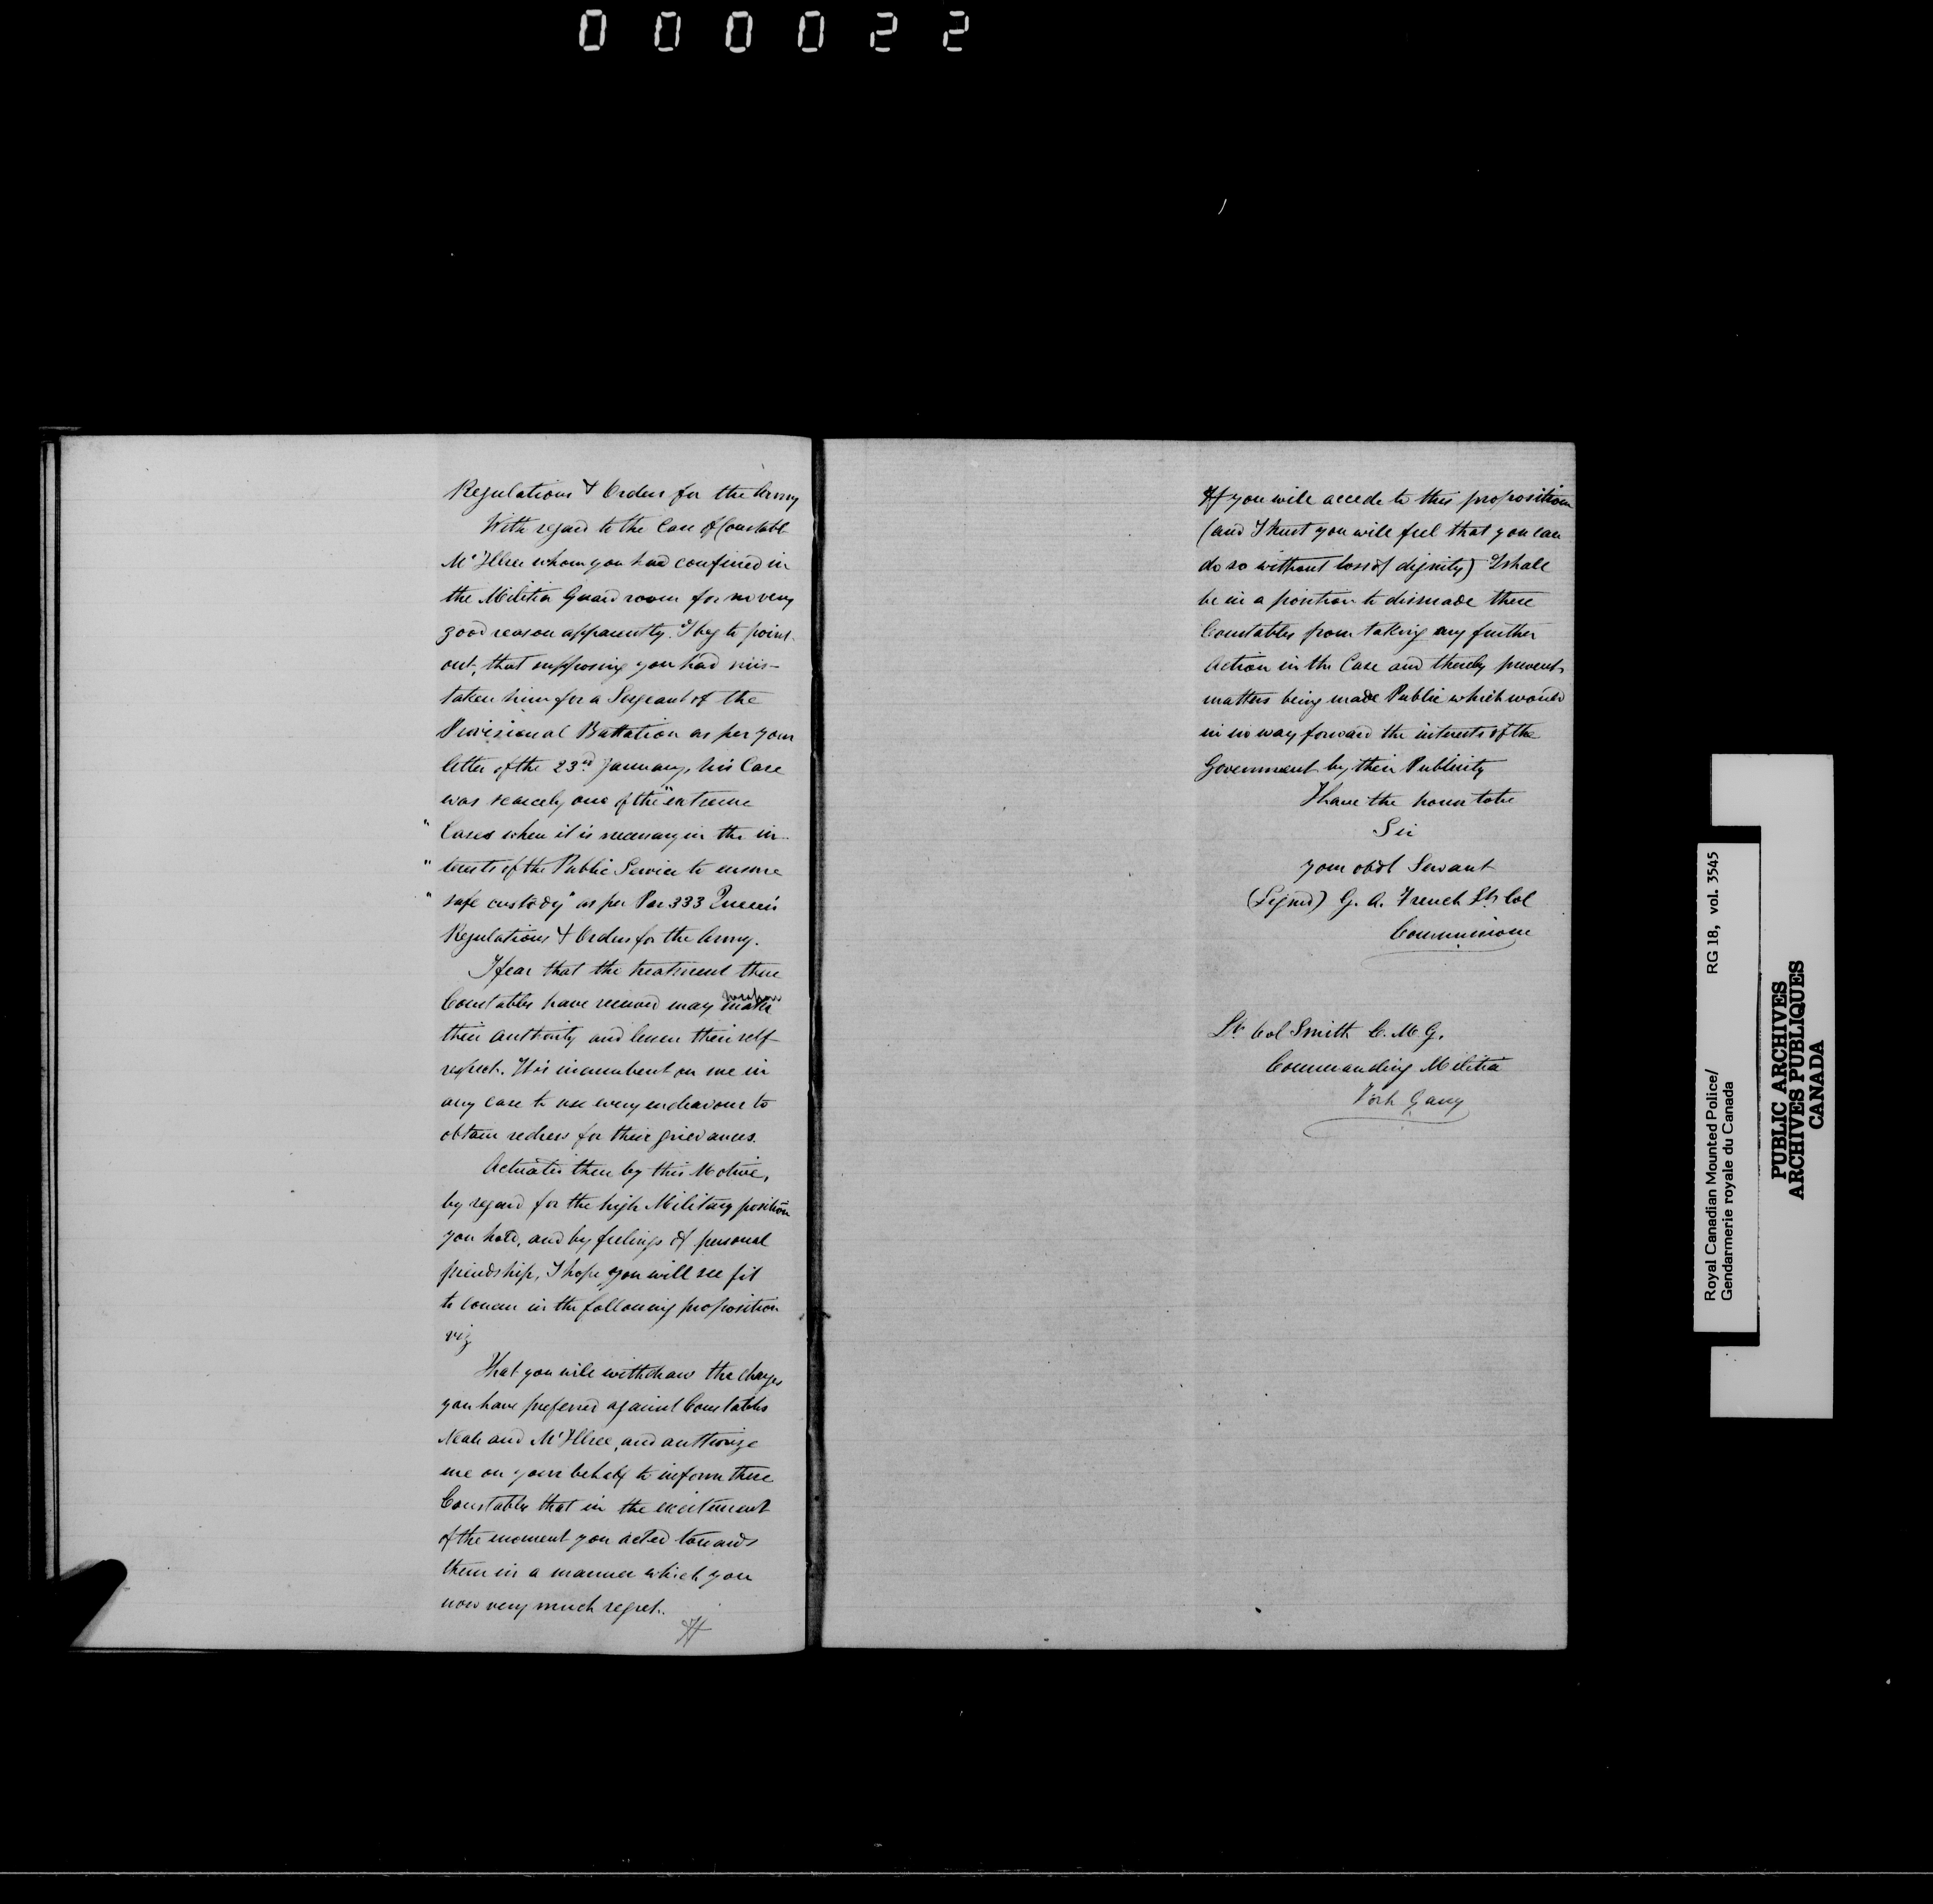 000022
Regulations & Orders for the Army
With regard to the Case of Constable
McIllree whom you had confined in
the Militia Guard room for no very
good reason apparently. I beg to point
out, that supposing you had mis-
taken him for a Sergeant of the
Provisional Battalion as per your
letter of the 23rd January, his Case
was scarcely one of the "extreme
" Cases when it is necessary in the in-
" terests of the Public Service to ensure
" safe custody" as per Par 333 Queen's
Regulations & Orders for the Army.
I fear that the treatment these
Constables have received may weaken
their authority and lessen their self
respect. It is incumbent on me in
any case to use every endeavour to
obtain redress for their grievances.
Actuated then by this Motive,
by regard for the high Military position
you hold, and by feelings of personal
friendship, I hope you will see fit
to concur in the following proposition
viz
That you will withdraw the charges
you have preferred against Constables
Neale and McIllree, and authorize
me on your behalf to inform these
Constables that in the excitement
of the moment you acted towards
them in a manner which you
now very much regret.
If you will accede to this proposition
(and I trust you will feel that you can
do so without loss of dignity) I shall
be in a position to dissuade these
Constables from taking any further
Action in the Case and thereby prevent
matters being made Public which would
in no way forward the interests of the
Government by their Publicity
I have the honor to be
Sir
your obdt Servant
(Signed) G. A. French Lt. Col
Commissioner
Lt. Col Smith C. M. G.
Commanding Militia
Fort Garry
Royal Canadian Mounted Police/
Gendarmerie royale du Canada
RG 18, vol. 3545
PUBLIC ARCHIVES
ARCHIVES PUBLIQUES
CANADA